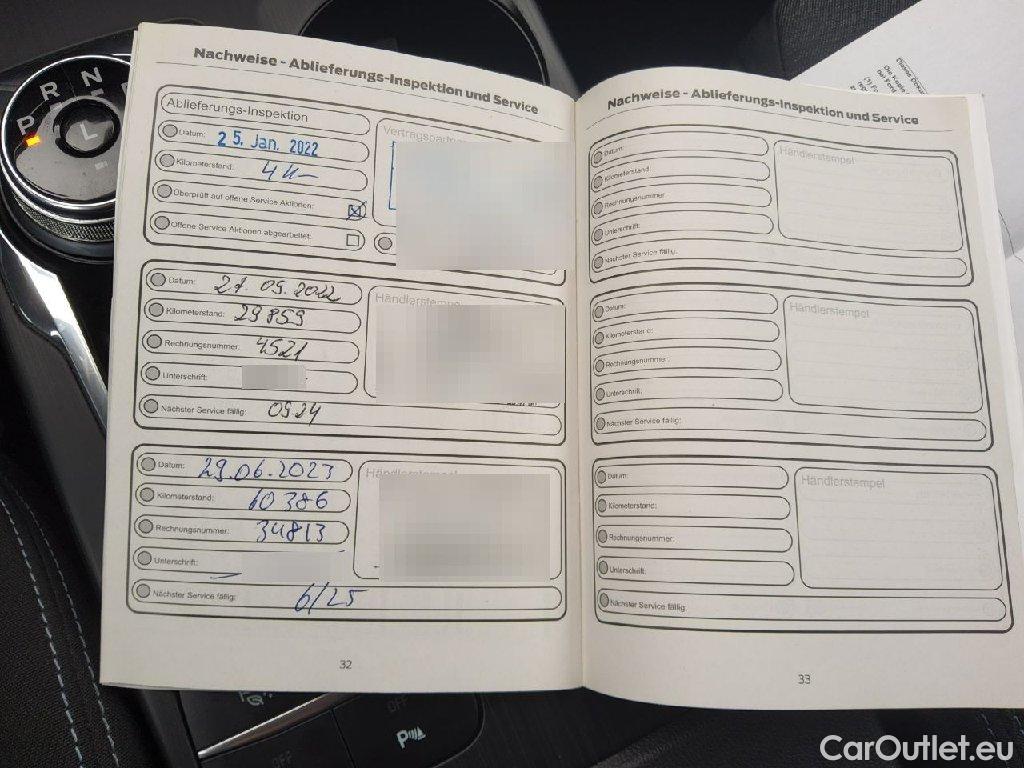 Nachweise - Ablieferungs-Inspektion und Service
Ablieferungs-Inspektion
Datum: 25. Jan. 2022
Kilometerstand:
Überprüft auf offene Service Aktionen:
Offene Service Aktionen abgearbeitet:
Vertragspartne
Datum: 21.09.2022
Kilometerstand: 29859
Rechnungsnummer: 4521
Unterschrift:
Nächster Service fällig: 0924
Händlerstempe
Datum: 29.06.2023
Kilometerstand: 60386
Rechnungsnummer: 34813
Unterschrift:
Nächster Service fällig: 6/25
32
Nachweise - Ablieferungs-Inspektion und Service
Datum:
Kilometerstand:
Rechnungsnummer:
Unterschrift:
Nächster Service fällig:
Händlerstempel
Datum:
Kilometerstand:
Rechnungsnummer:
Unterschrift:
Nächster Service fällig:
Händlerstempel
Datum:
Kilometerstand:
Rechnungsnummer:
Unterschrift:
Nächster Service fällig:
Händlerstempel
33
P R N
L
OFF
OFF
CarOutlet.eu